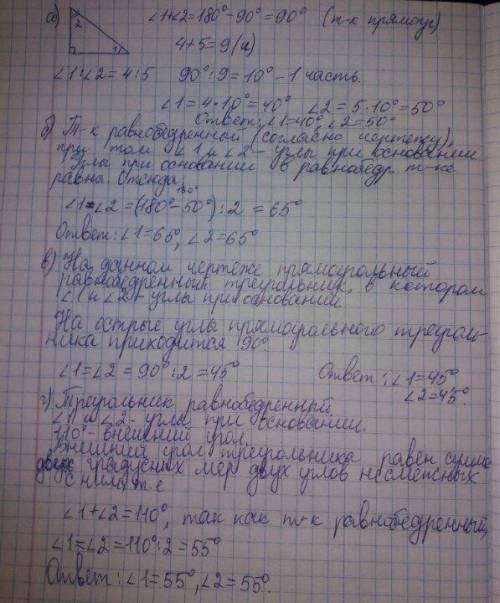 а) ∠1+∠2=180°-90°=90° (т-к прямоуг)
2
1
4+5=9(ч)
∠1:∠2=4:5 90°:9=10°-1 часть.
∠1=4·10°=40° ∠2=5·10°=50°
Ответ: ∠1=40°, ∠2=50°
б) Т-к равнобедренной (согласно чертежу),
при том ∠1 и ∠2 - углы при основании
Углы при основании в равнобедр. т-ке
равны. Отсюда,
∠1=∠2=(180°-50°):2=65°
Ответ: ∠1=65°, ∠2=65°
в) На данном чертеже прямоугольный
равнобедренный треугольник, в котором
∠1 и ∠2 - углы при основании.
На острые углы прямоугольного треуголь-
ника приходится 90°.
∠1=∠2=90°:2=45° Ответ: ∠1=45°
∠2=45°.
г) Треугольник равнобедренный,
∠1 и ∠2 - углы при основании.
110° - внешний угол.
Внешний угол треугольника равен сумме
градусных мер двух углов не смежных
с ним, т.е
∠1+∠2=110°, так как т-к равнобедренный,
∠1=∠2=110°:2=55°
Ответ: ∠1=55°, ∠2=55°.